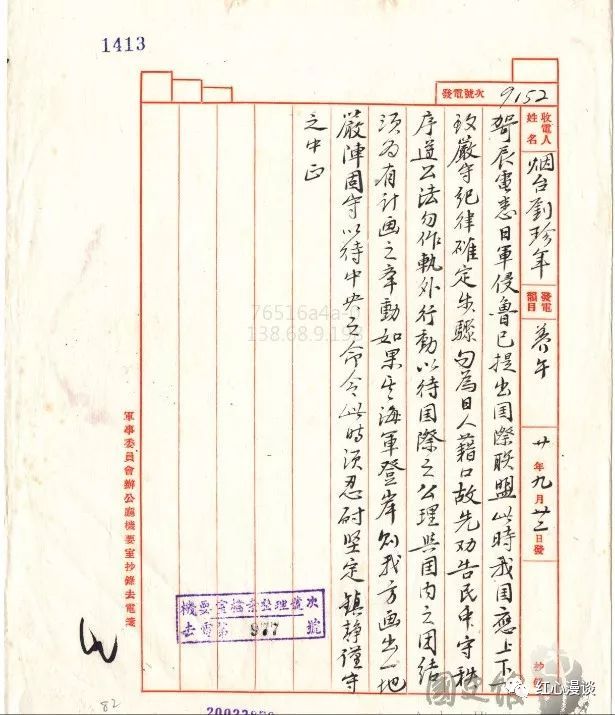 1413
發電號次 9152
收電人姓名 烟台劉珍年 發電韻目 養午 廿年九月廿二日發 抄錄
哿辰電悉日軍侵魯已提出国際联盟此時我国應上下
致嚴守纪律確定步驟勿為日人藉口故先劝告民众守秩
序遵公法勿作軌外行動以待国際之公理與国内之团结
须为有计画之牵動如果其海軍登岸则我方画出一地
嚴陣固守以待中央之命令此時须忍耐坚定镇静谨守
之中正
機要室檔案整理號次
去電第 977 號
軍事委員會辦公廳機要室抄錄去電箋
76516a4a-
138.68.9.19
82
國史館
红心漫谈